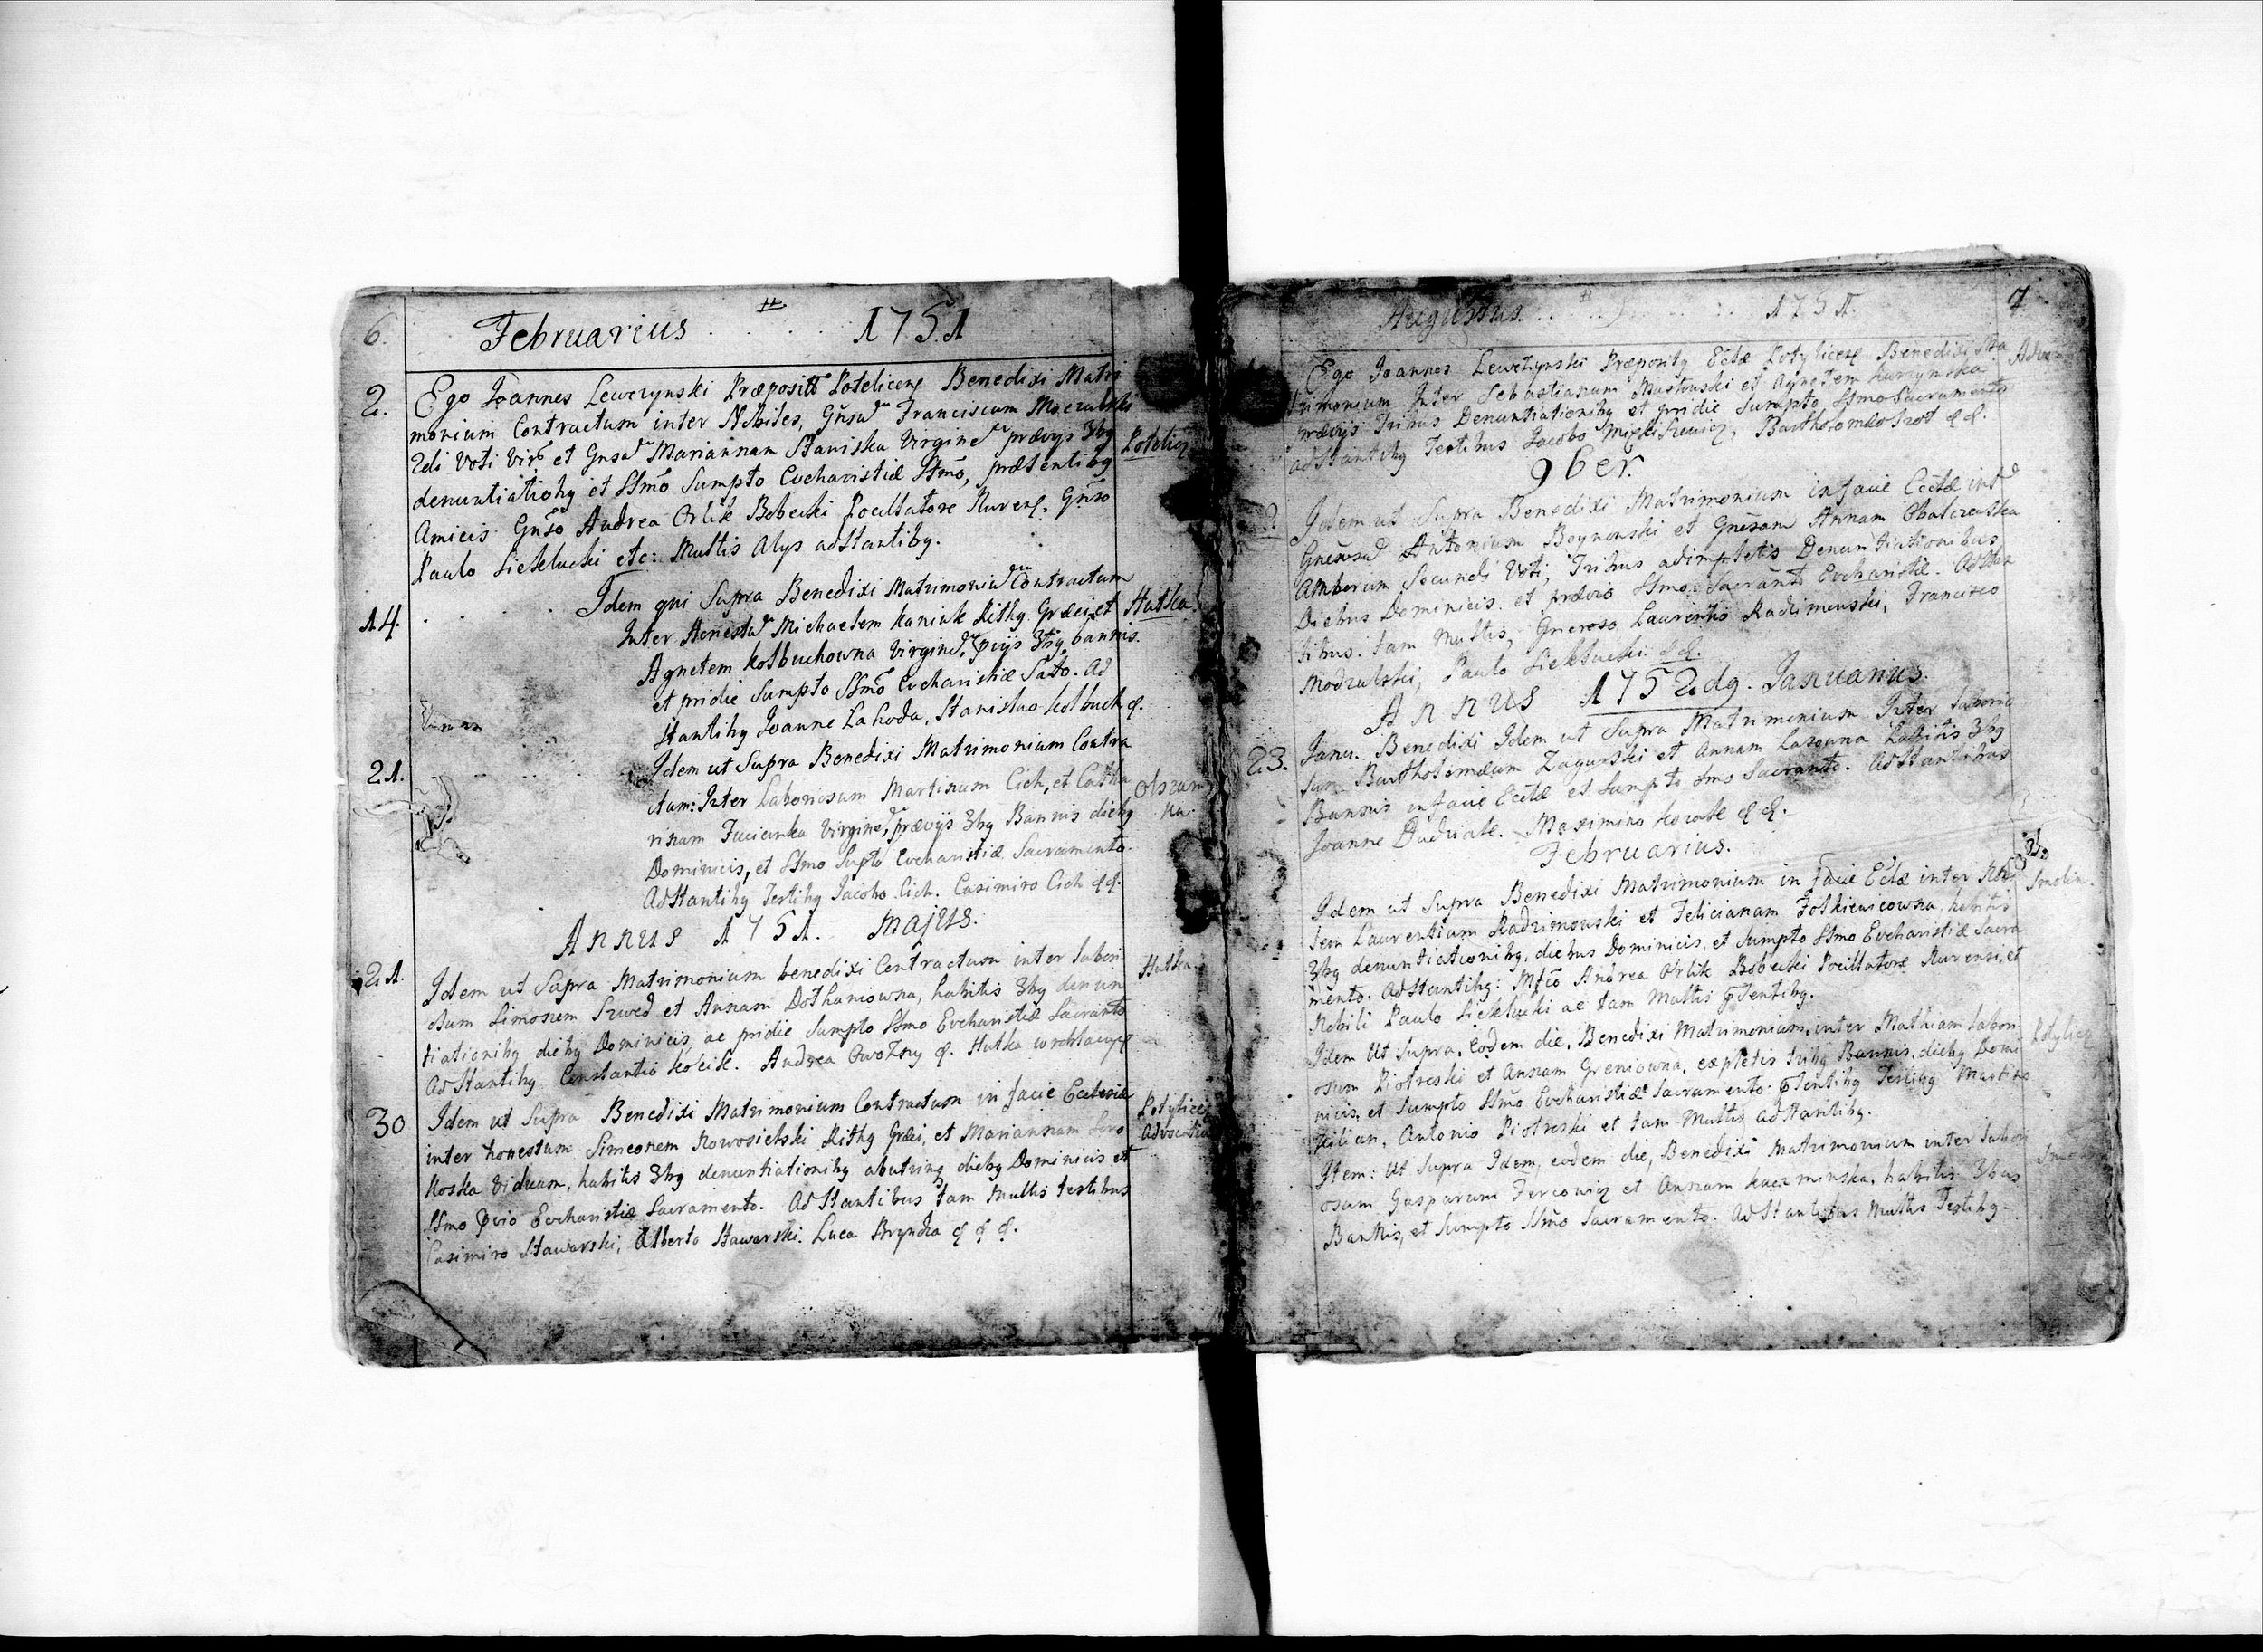 6. Februarius . . . . 1751
2. Ego Joannes Lewczynski Præposit9 Potelicens. Benedixi Matri
monium Contractum inter Nobiles, Gnsum Franciscum Moczulski
2di Voti Viro et Gnsam Mariannam Stawiska Virginem prævys 3bg
Potelicz
denuntiationbg et SSmo Sumpto Eucharistiæ SSmo, præsentibg
Amicis Gnso Andrea Orlik Bobecki Pocillatore Nurens. Gnso
Paulo Sieklucki etc: Multis Alys adstantibg.
14. Idem qui Supra Benedixi Matrimoniu Contractum
Hutka
Inter Honestu Michaelem Kaniuk Rithg Græci et
Agnetem Kolbuchowna Virgine, pvijs 3bg bannis.
et pridie Sumpto SSmo Eucharistiæ Sato. Ad
stantibg Joanne Lahoda, Stanislao Kolbuch &.
21. Idem ut Supra Benedixi Matrimonium Contra
ctum: Inter Laboriosum Martinum Cich, et Catha
rinam Jucianka Virgine, prævijs 3bg Bannis diebg
Dominicis, et SSmo Supto Eucharistiæ Sacramento.
AdStantibg Testibg Jacobo Cich. Casimiro Cich & &.
Annus 1751. Majus.
21. Idem ut Supra Matrimonium benedixi Contractum inter Labori
Hutka.
osum Simonem Szwed et Annam Dothaniowna, habitis 3bg denun
tiationibg diebg Dominicis, ac pridie Sumpto SSmo Eucharistiæ Sacranto
AdStantibg Constantio Kocik. Andrea Gwozny &. Hutka
30 Idem ut Supra Benedixi Matrimonium Contractum in facie Ecclesiæ
Potylicz
inter honestum Simeonem Nowosielski Rithg Græci, et Mariannam
Advocatia
Viduam, habitis 3bg denuntiationibg abutring diebg Dominicis et
SSmo pvio Eucharistiæ Sacramento. AdStantibus tam Multis testibus
Casimiro Stawarski, Alberto Stawarski. Luca Bryndza & & &.
Augustus . . . . 1751. 7
Ego Joannes Lewczynski Præpositg Eclæ Potylicens Benedixi Ma
trimonium Inter Sebastianum et Agnetem
prævijs Tribus Denuntiationibg et pridie Sumpto SSmo Sacramento
adstantibg Testibus Jacobo Bartholomæo & &.
9ber.
Idem ut Supra Benedixi Matrimonium in facie Eccltæ int
Antonium Boynonski et Annam
Amborum Secundi Voti, Tribus adimpletis Denuntiationibus
Diebus Dominicis. et prævio SSmo Sacranto Eucharistiæ. AdStan
tibus. tam Multis, Generoso Laurentio Radzimenski, Francisco
Moczulski, Paulo Sieklucki & &.
Annus 1752dg. Januarius.
23. Janu. Benedixi Idem ut Supra Matrimonium Inter Laborio
sum Bartholomæum Zagurski et Annam habitis 3bg
Bannis in facie Eccltæ et Sumpto SSmo Sacranto. AdStantibus
Joanne Dudziak. Maximino & &.
Februarius.
Idem ut Supra Benedixi Matrimonium in facie Eclæ inter Nobi
Smolin.
lem Laurentium Radzimowski et Felicianam habitis
3bg denuntiationibg, diebus Dominicis, et Sumpto SSmo Eucharistiæ Sacra
mento. AdStantibg: Mfco Andrea Orlik Bobecki Pocillatore Nurensi, et
Nobili Paulo Sieklucki ac tam Multis psentibg.
Idem Ut Supra, Eodem die, Benedixi Matrimonium inter Mathiam Labori
Potylicz
osum Piotreski et Annam Greniowna, expletis tribg Bannis, diebg Domi
nicis, et Sumpto SSmo Eucharistiæ Sacramento: psentibg Testibg Martino
Kilian, Antonio Piotreski et tam Multis adstantibg.
Item: Ut Supra Idem, eodem die, Benedixi Matrimonium inter Labori
osum Gasparum Fercowicz et Annam Kaczminska, habitis 3bus
Bannis, et Sumpto SSmo Sacramento. AdStantibus Multis Testibg.